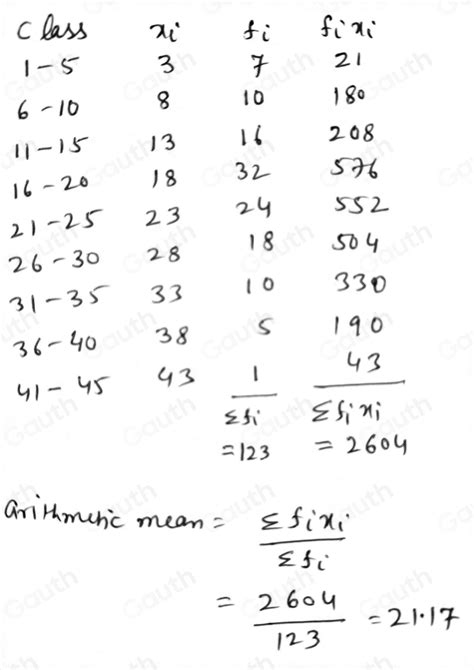 Class xi fi fixi
1-5 3 7 21
6-10 8 10 180
11-15 13 16 208
16-20 18 32 576
21-25 23 24 552
26-30 28 18 504
31-35 33 10 330
36-40 38 5 190
41-45 43 1 43
Σfi Σfixi
=123 = 2604
arithmetic mean = Σfixi
Σfi
= 2604 = 21.17
123